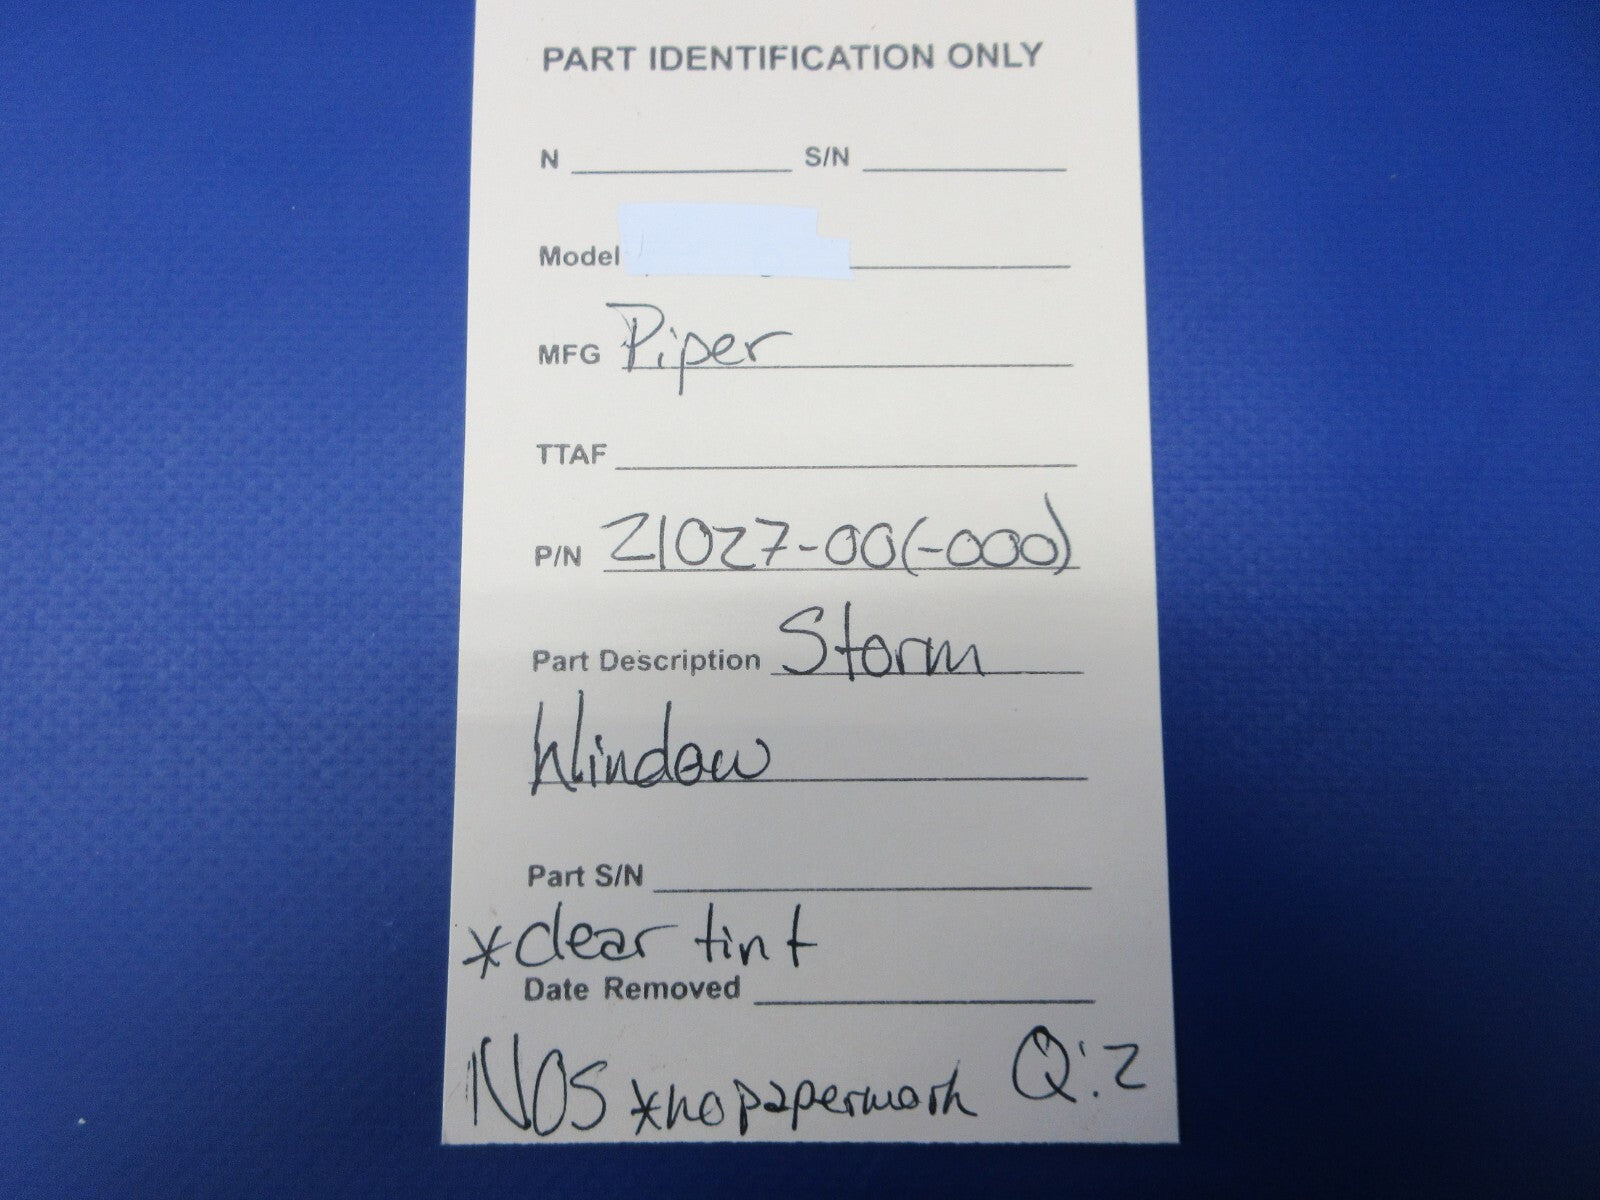 PART IDENTIFICATION ONLY
N S/N
Model
MFG Piper
TTAF
P/N 21027-00(-000)
Part Description Storm
Window
Part S/N
*clear tint
Date Removed
NOS *no paperwork Q:2